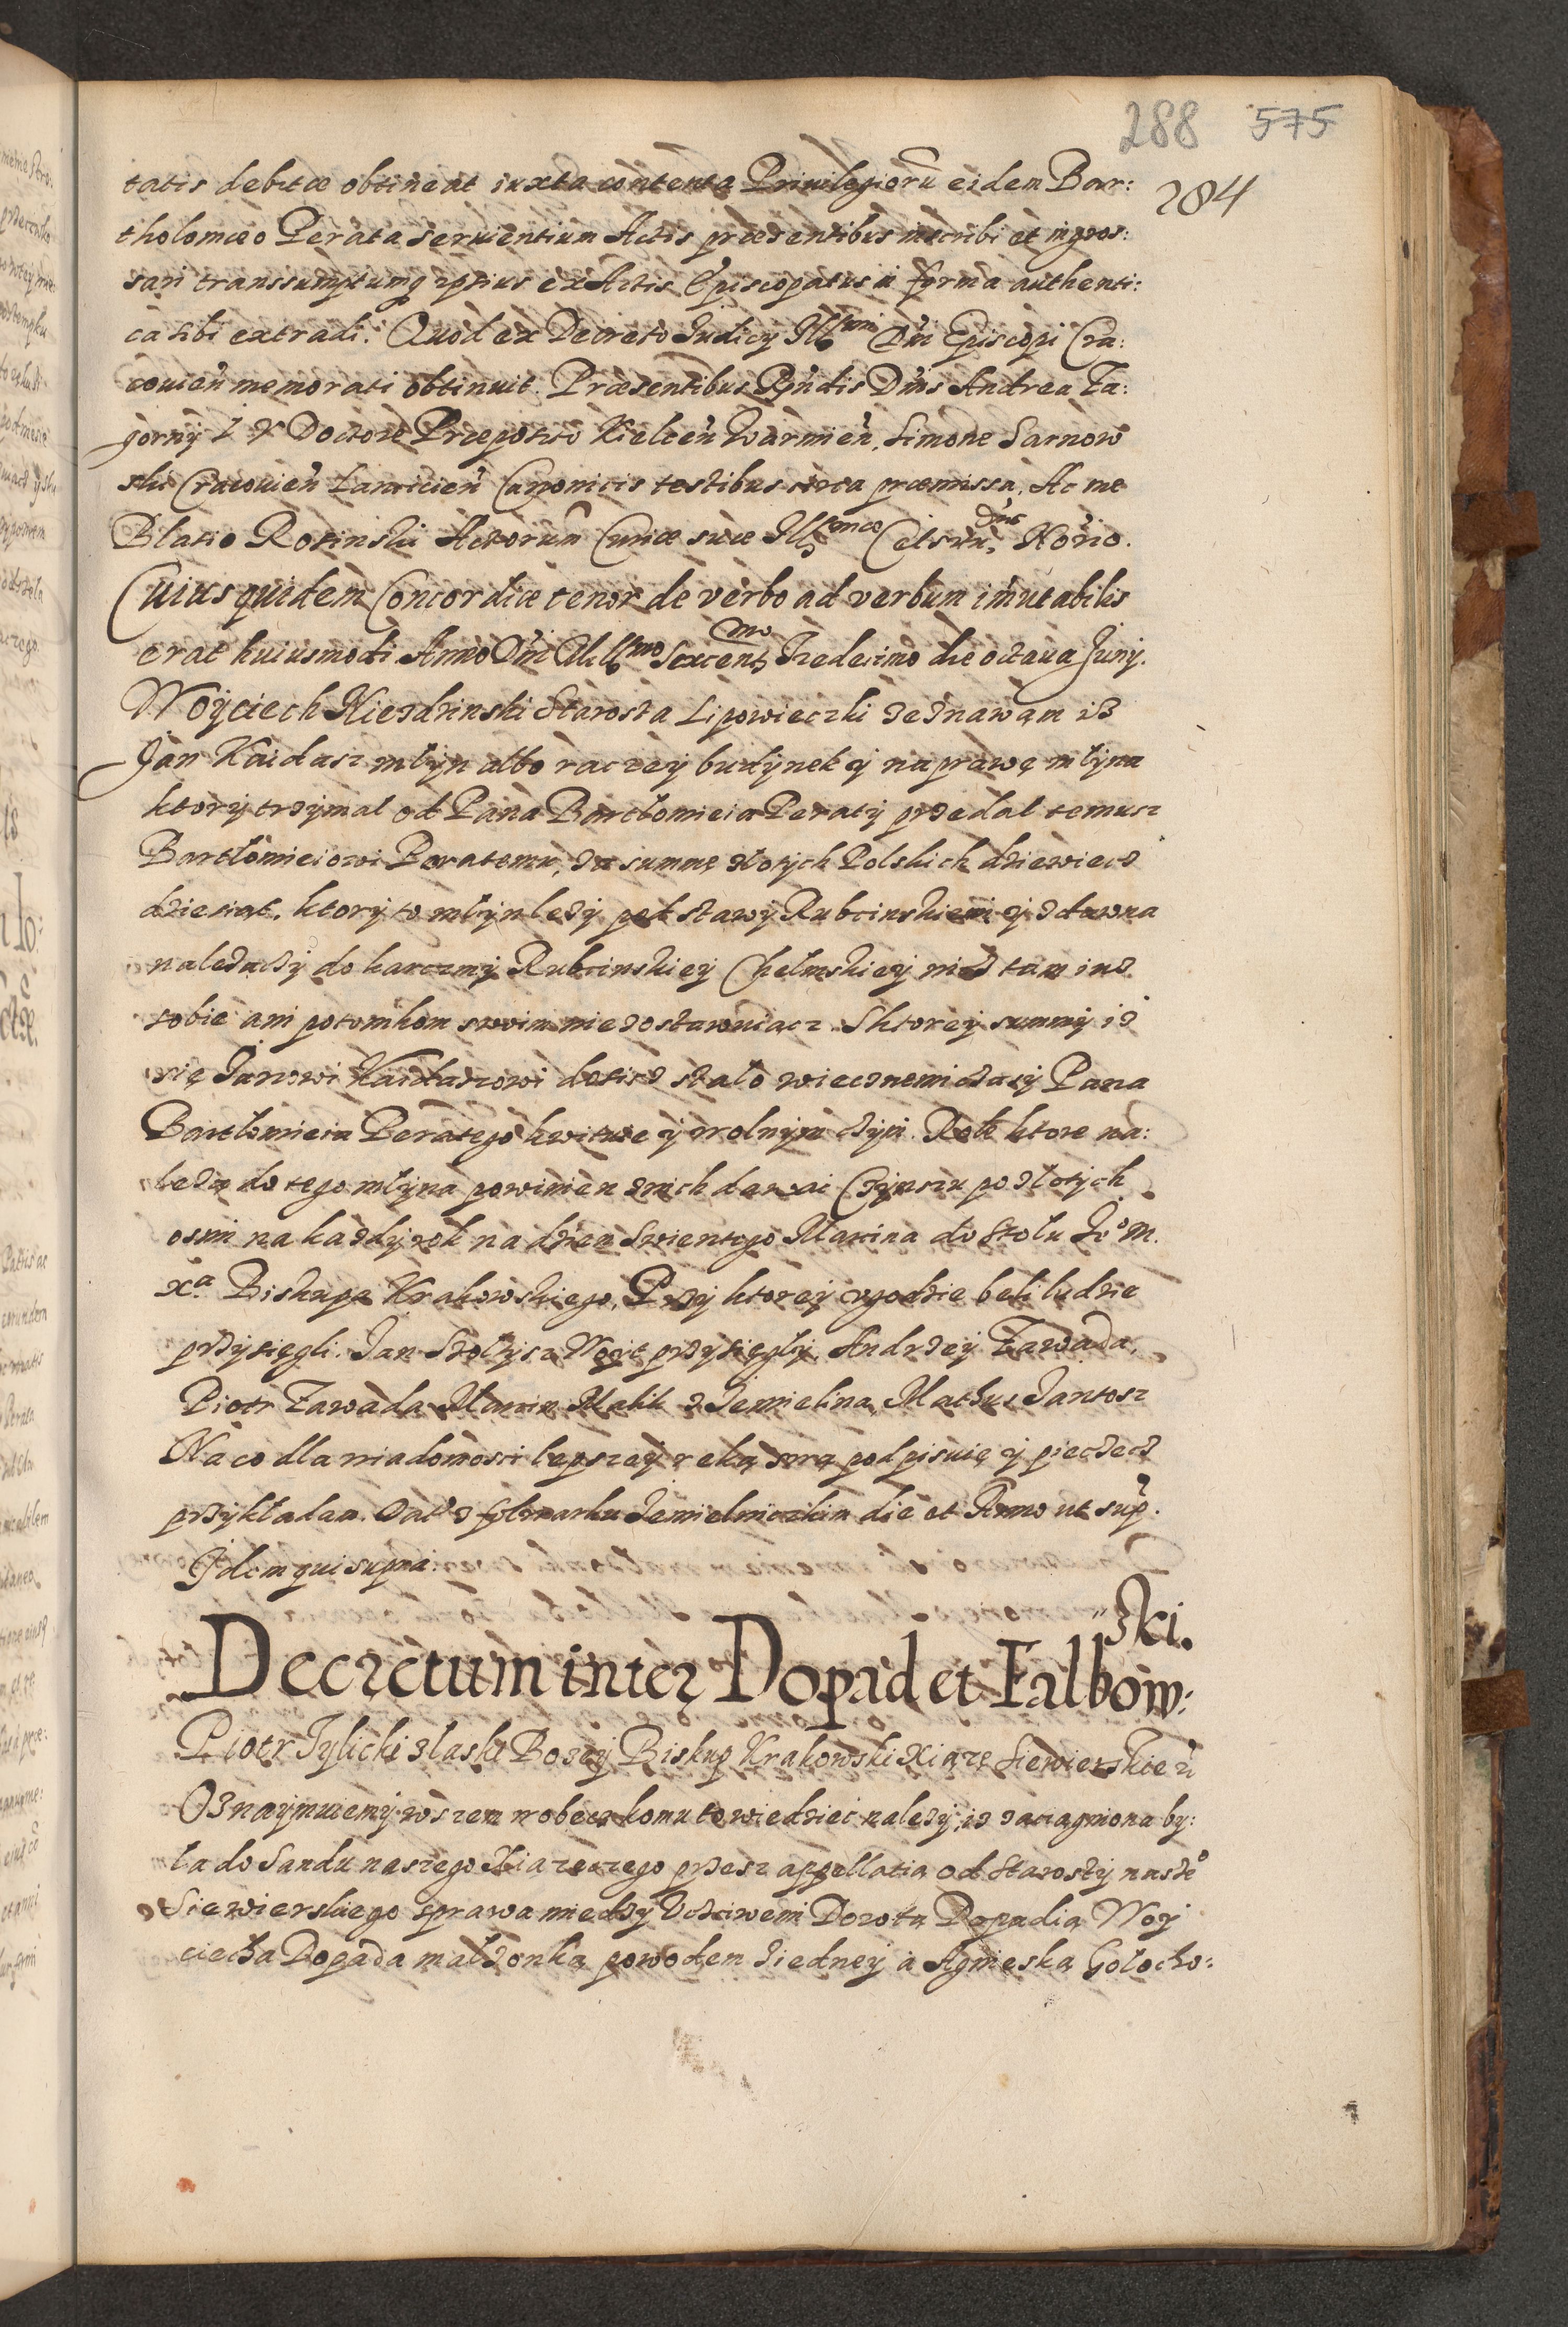 288 575
284
tatis debitæ obtineat iuxta contenta Privilegiorũ eidem Bar:
tholomæo Perata servientium Actis præsentibus inscribi et ingros:
sari transsumptumq ipsius ex Actis Episcopatus in forma authenti:
ca sibi extradi. Quod ex Decreto Iudicy Illmi Dni Episcopi Cra:
couień memorati obtinuit. Præsentibus Rndis Dnis Andrea Za:
gorny I V Doctore Præposito Kielceń Warmień, Simone Sarnow
ski Cracouień Lancicień Canonicis testibus circa præmissa. Ac me
Blasio Rosinski Actorum Curiæ suæ Illmæ Celsnis Dnis Nõrio.
Cuius quidem Concordiæ tenor de verbo ad verbum imutabilis
erat huiusmodi. Anno Dni Millmo Sexcentmo Tredecimo die octaua Juny.
Woyciech Niezdzinski Starosta Lipowieczki zeznawam iż
Jan Kaidasz młyn albo raczey budynek y naprawę młyna
ktory trzymal od Pana Bartłomieia Peraty przedal temusz
Bartłomieiowi Peratemu, za summę złotych Polskich dziewiecz
dziesiat, ktory to młyn leży pod stawy Rubcinskiemi y zdawna
należaczy do karczmy Rubcinskiey Chełmskiey nicz tam iuz
sobie ani potomkom swoim niezostawuiącz. Sktorey summy iz
się Janowi Kaidaszowi dosicz stało wiecznemi czasy Pana
Bartłomieia Peratego kwituie y wolnym czyni. Role ktore na:
leżą do tego młyna powinien znich dawac Czynszu po złotych
osim na każdy rok na dzien Swientego Marcina do Stołu Jº M.
Xa Biskupa Krakowskiego, Przy ktorey zgodzie beli ludzie
przysięgli. Jan Szołtysz Woyt przysięgły, Andrzey Zawada,
Piotr Zawada Marcin Malik z Jemielina, Mathus Jantosz
Na co dla wiadomosci lepszey reką swą podpisuię y pieczecz
przykładam. Dat z folwarku Jemielniczkim die et Anno ut sup.
Idem qui supra.
Decretum inter Dopad et Falkow:
ski.
Piotr Tylicki złaski Bożey Biskup Krakowski Xiąże Siewierskie &
Oznaymuiemy wszem wobecz komu to wiedziec należy, iz zaciagniona by:
ła do Sandu naszego Xiazeczego przesz appellatią od Starosty naszeº
Siewierskiego sprawa miedzy Vcżciwemi Dorotą Dopadią Woy
ciecha Dopada małżonką powodem ziedney a Agnieską Gołocho: